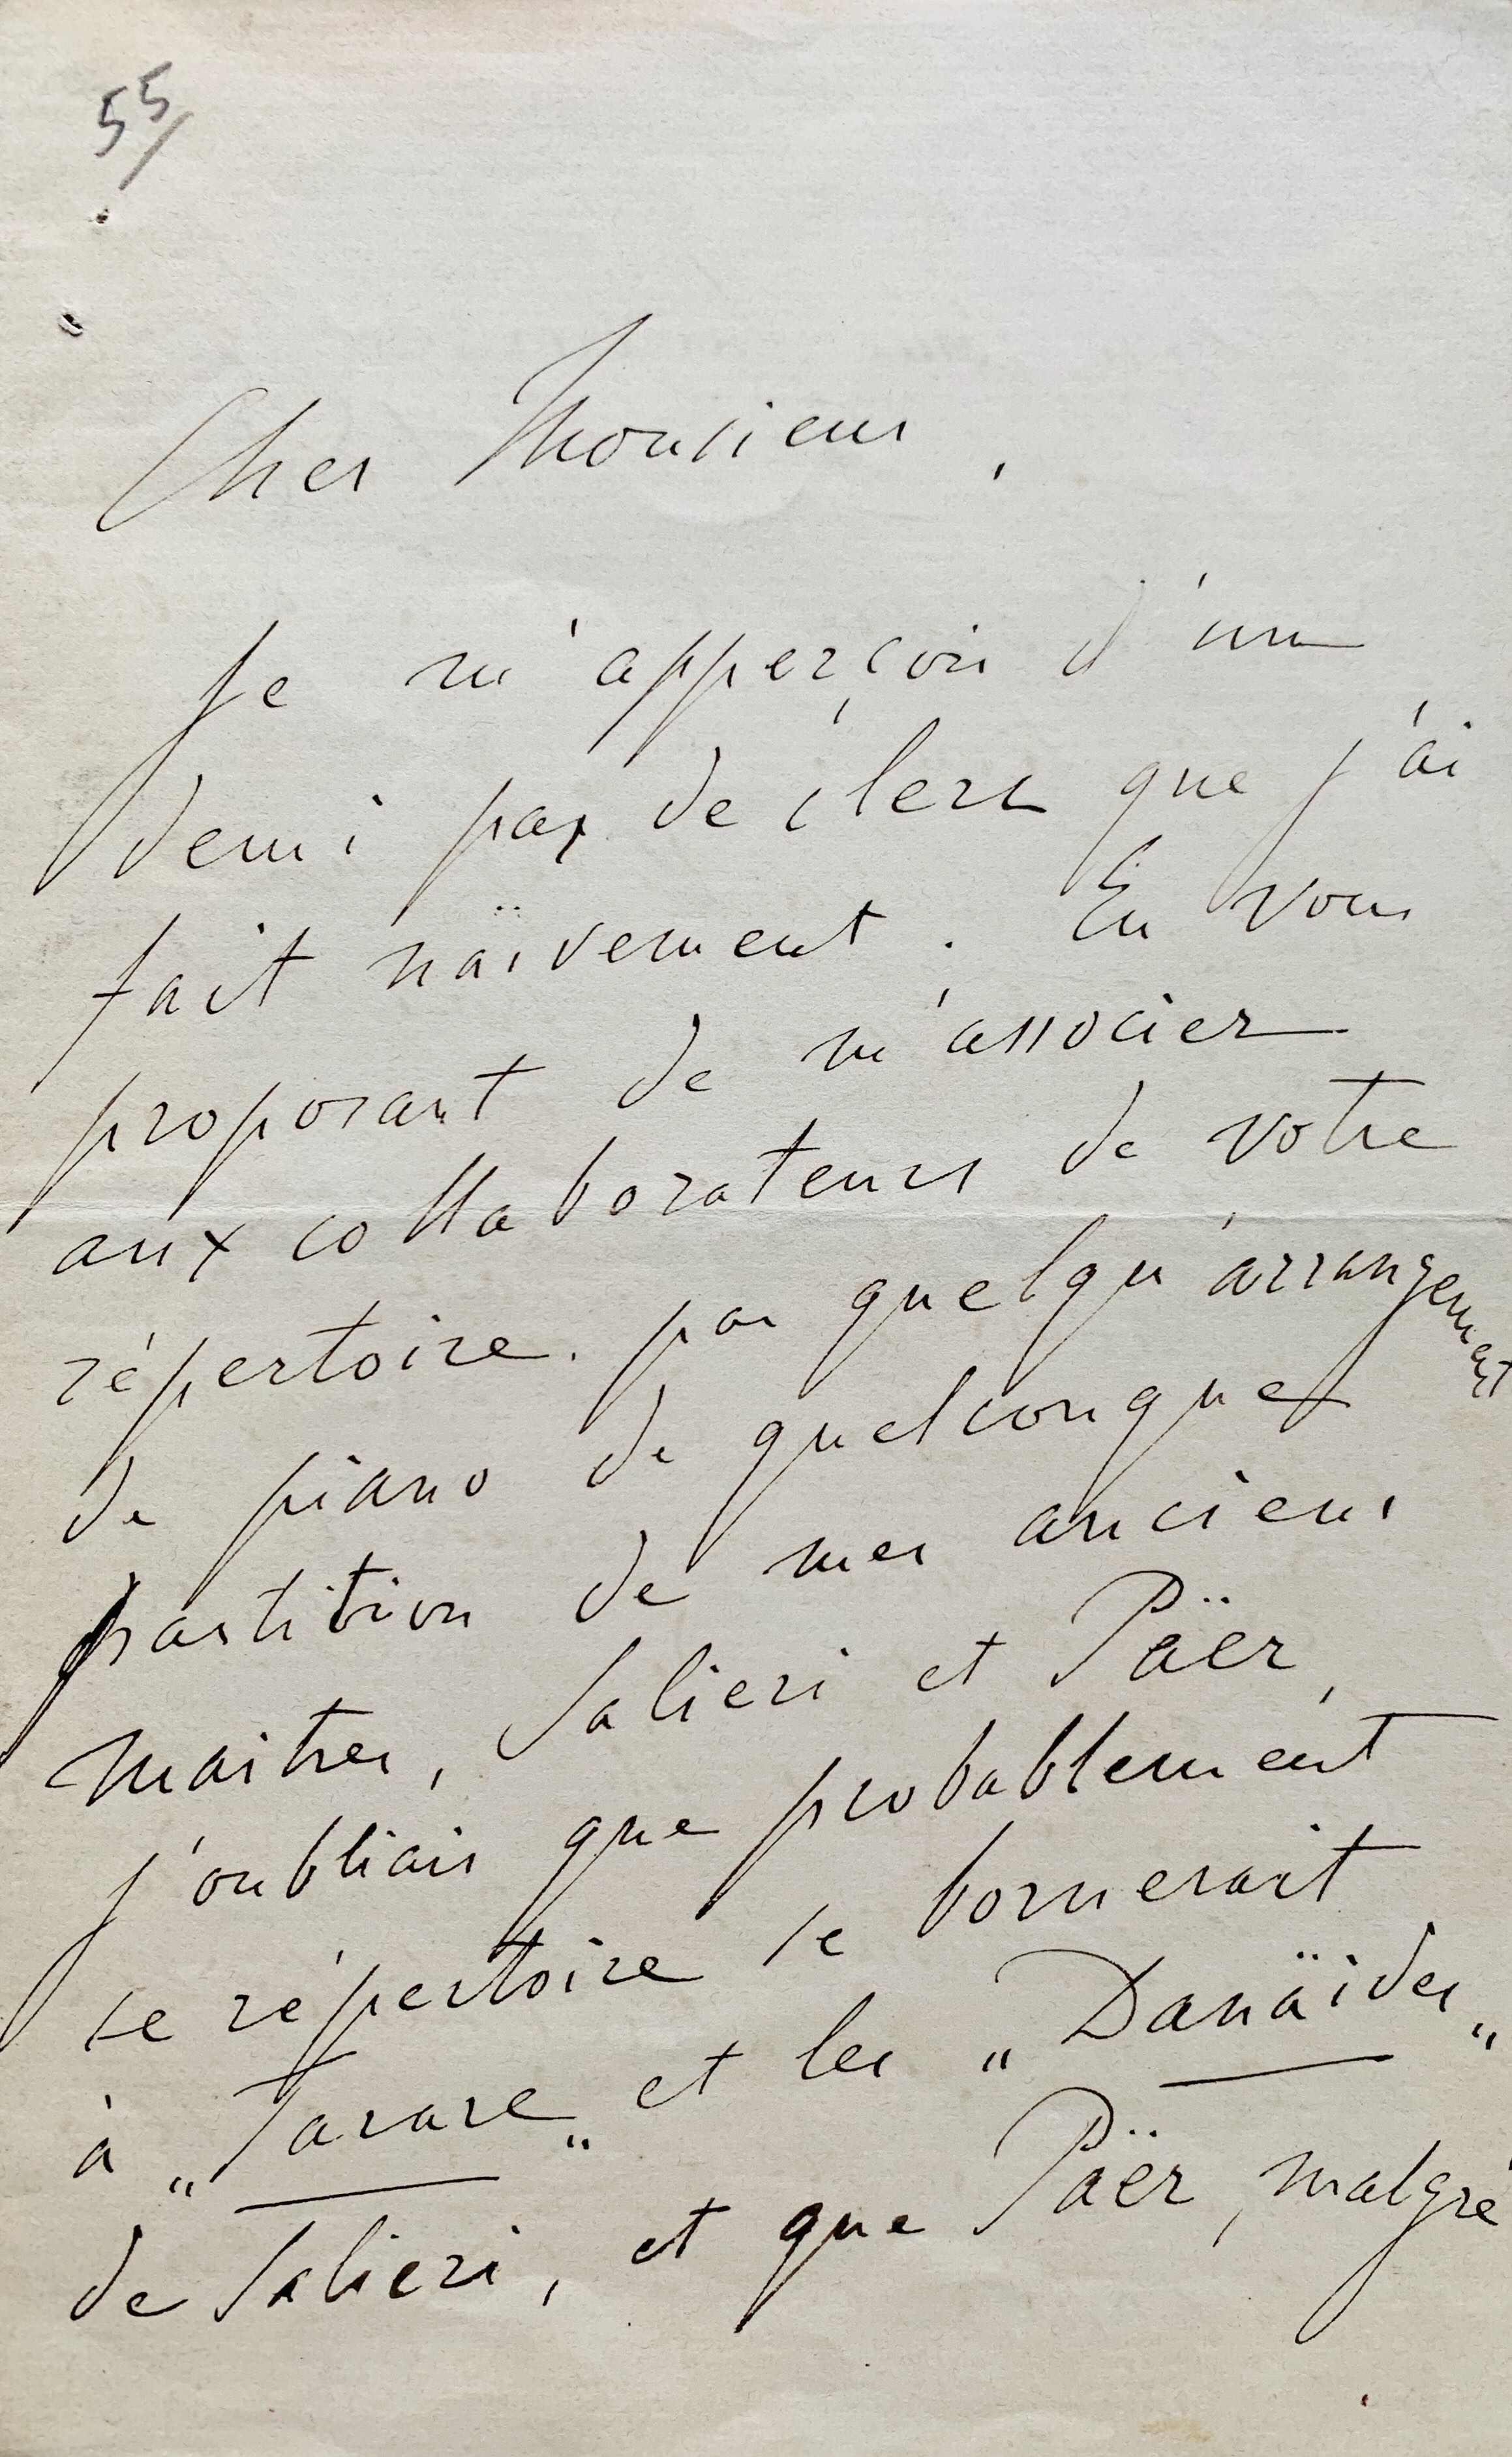 55/
Cher Monsieur,
Je m'apperçois d'un
demi pas de clerc que j'ai
fait naïvement. En vous
proposant de m'associer
aux collaborateurs de votre
répertoire. par quelqu'arrangement
de piano de quelconques
partition de mes anciens
maitres, Salieri et Päer,
j'oubliais que probablement
ce répertoire se bornerait
à „Tarare„ et les „Danäides„
de Salieri, et que Päer, malgré